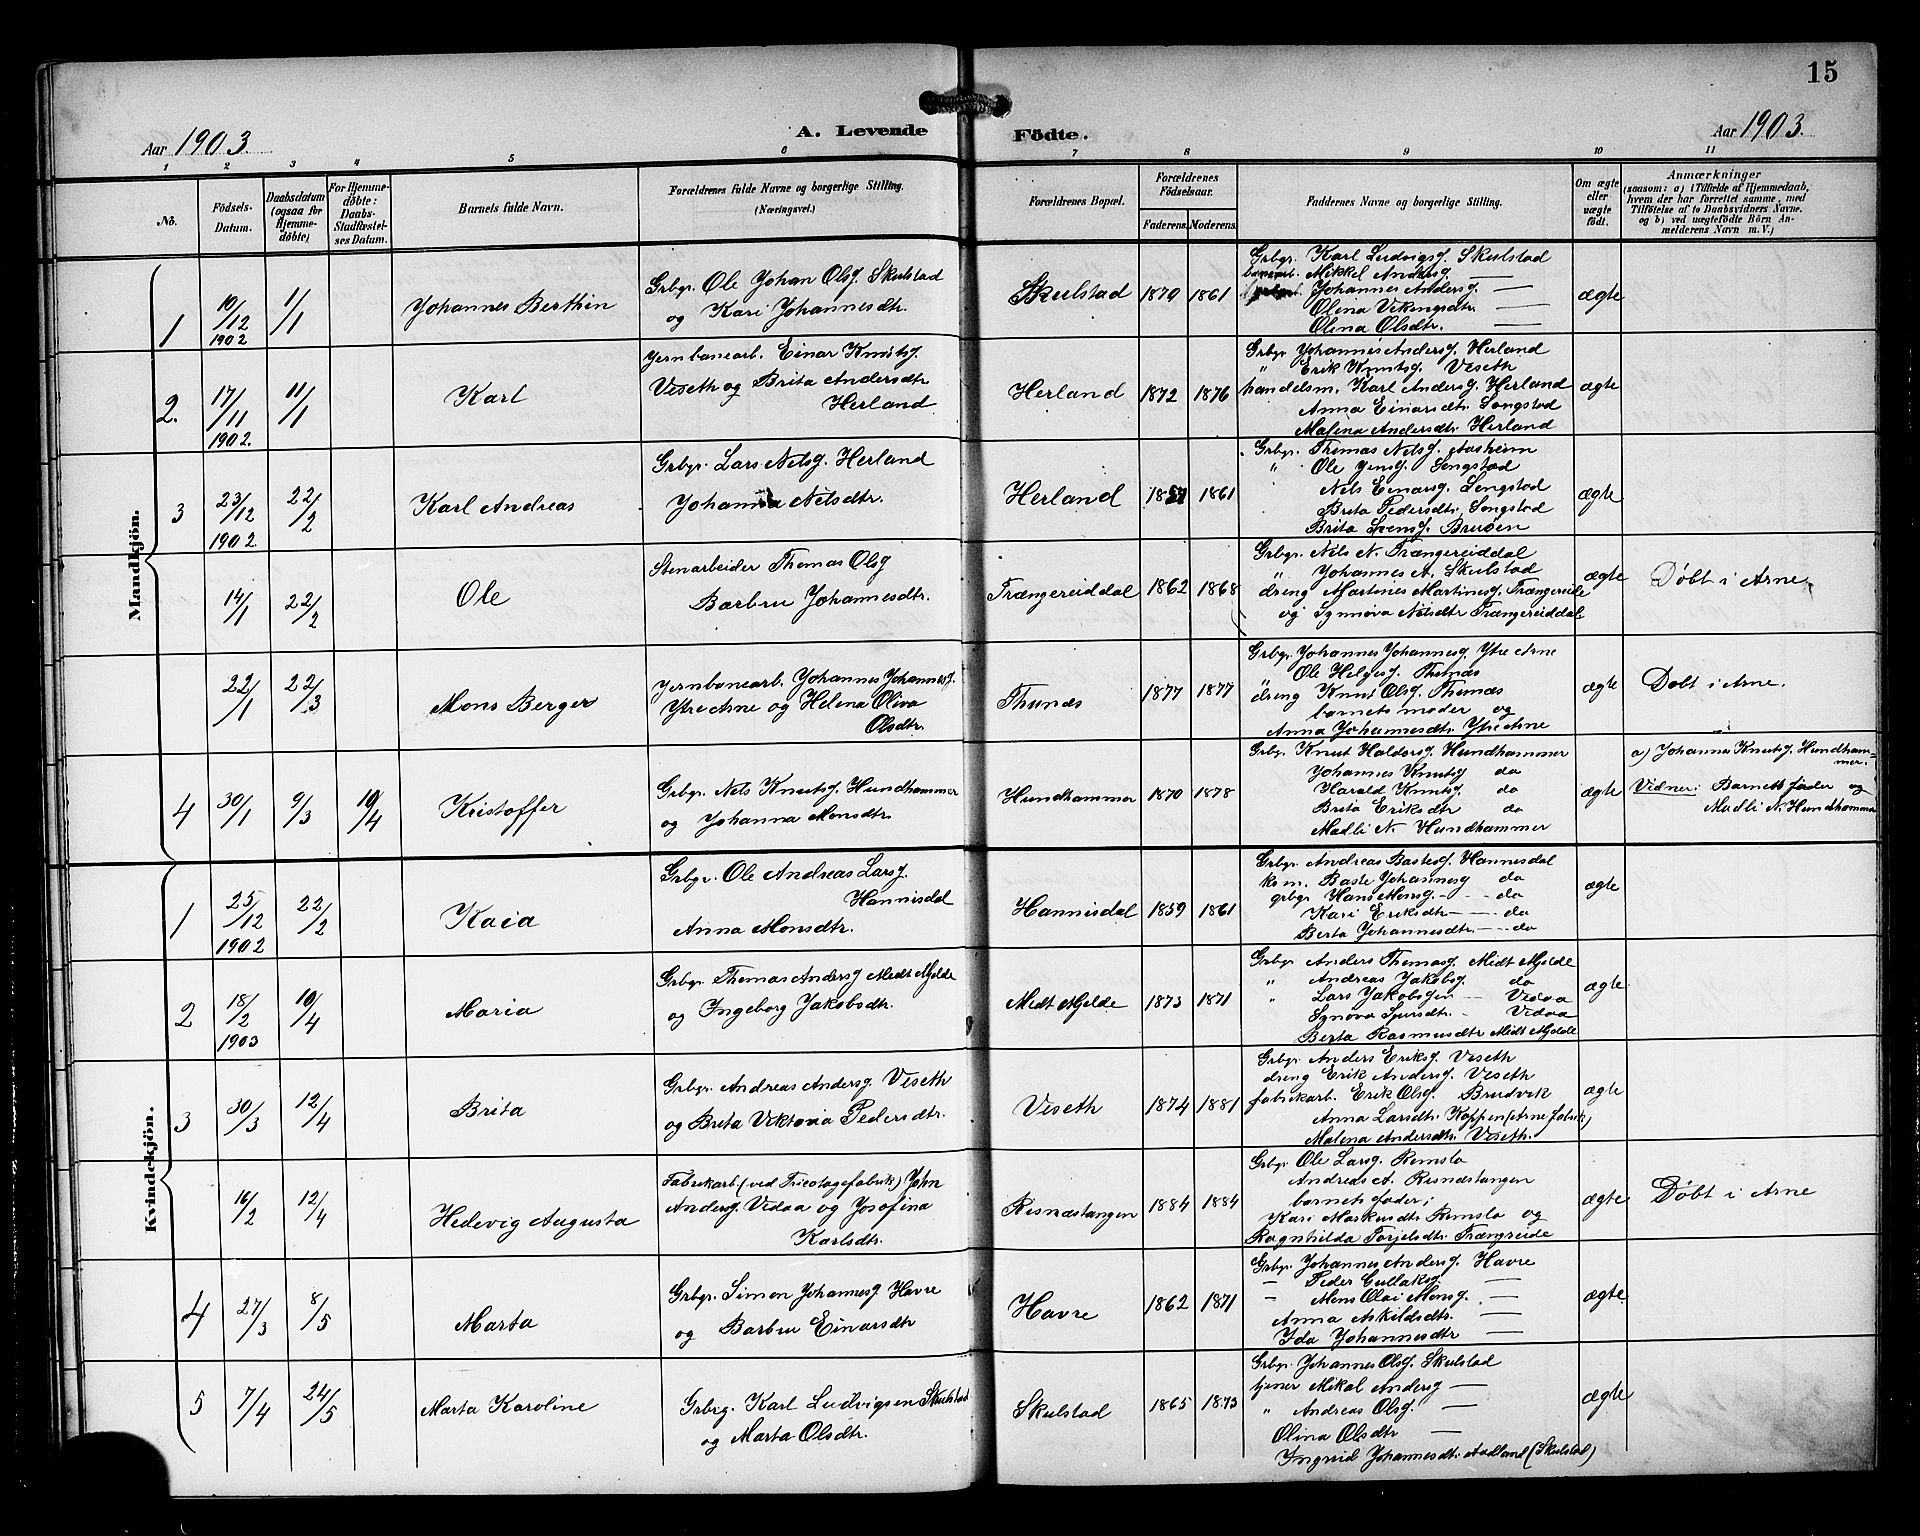 15
Aar 1903.
A. Levende Födte.
Aar 1903.
1 2 3 4 5 6 7 8 9 10 11
No.
Födsels-
Datum.
Daabsdatum
(ogsaa for
Hjemme-
døbte)
For Hjemme-
døbte:
Daabs-
Stadfæstel-
ses Datum.
Barnets fulde Navn.
Forældrenes fulde Navne og borgerlige Stilling.
(Næringsvei.)
Forældrenes Bopæl.
Forældrenes
Födselsaar.
Faderens. Moderens.
Faddernes Navne og borgerlige Stilling.
Om ægte
eller
uægte
födt.
Anmærkninger
(saasom: a) i Tilfælde af Hjemmedaab,
hvem der har forrettet samme, med
Tilföielse af to Daabsvidners Navne,
og b) ved uægtefödte Börn An-
melderens Navn m. V.)
Mandkjön.
1
10/12
1902
1/1
Johannes Berthin
Grbgr. Ole Johan Olsg. Skulstad
og Kari Johannesdtr.
Skulstad
1870 1861
Grbgr. Karl Ludvigsg. Skulstad
Mikkel Andersg. —
Johannes Andersg. —
Olina Vekingsdtr. —
Olina Olsdtr. —
ægte
2.
17/11
1902.
11/1
Karl
Jernbanearb. Einar Knutsg.
Veseth og Brita Andersdtr
Herland
Herland
1872 1876
Grbgr Johannes Andersg. Herland
" Erik Knutsg. Veseth
handelsm. Karl Andersg. Herland
Anna Einarsdtr. Songstad
Malena Andersdtr. Herland
ægte
3
23/12
1902.
22/2
Karl Andreas
Grbgr. Lars Nelsg. Herland
Johanna Nelsdtr.
Herland
1861
Grbgr. Thomas Nelsg. Aasheim
" Ole Jensg. Songstad
Nels Einarsg. Songstad
Brita Pedersdtr. Songstad
Brita Svensg. Bruøen
ægte
14/1
22/2
Ole
Stenarbeider Thomas Olsg
Barbru Johannesdtr.
Trængereiddal
1862 1868
Grbgr. Nels N. Trængereiddal
" Johannes A. Skulstad
dreng Martines Martinesg. Trængereide
og Synnøva Nelsdtr Trængereiddal
ægte
Døbt i Arne.
22/1
22/3
Mons Berger
Jernbanearb. Johannes Johannesg.
Ytre Arne og Helena Oliva
Olsdtr.
Thunes
1877 1877
Grbgr. Johannes Johannesg. Ytre Arne
" Ole Helgesg. Thunæs
dreng Knut Olsg. Thunæs
barnets moder og
Anna Johannesdtr. Ytre Arne
ægte
Døbt i Arne.
4
30/1
9/3
19/4
Kristoffer
Grbgr. Nels Knutsg. Hundhammer
og Johanna Monsdtr.
Hundhammer
1870 1878
Grbgr. Knut Haldorsg. Hundhammer
Johannes Knutsg do
Harald Knutsg. do
Brita Eriksdtr do
Madli N. Hundhammer
ægte
a) Johannes Knutsg. Hundham-
mer.
Vidner: Barnets fader og
Madli N. Hundhammer
Kvindekjön.
1
25/12
1902
22/2
Kaia
Grbgr. Ole Andreas Larsg.
Hannisdal
Anna Monsdtr.
Hannisdal
1859 1861
Grbgr. Andreas Bastesg. Hannesdal
ks m. Baste Johannesg do
grbgr Hans Monsg. — do
Kari Eriksdtr — do
Berta Johannesdtr. — do
ægte
2
18/2
1903
19/4
Maria
Grbgr. Thomas Andersg Midt Mjelde
og Ingeborg Jakobsdtr.
Midt Mjelde
1873 1871
Grbgr. Anders Thomasg. Midt Mjelde
" Andreas Jakobsg. do
" Lars Jakobsgen — Vidaa
Synova Sjursdtr. — Vidaa
Berta Rasmusdtr Midt Mjelde
ægte.
3
30/3
12/4
Brita
Grbgr. Andreas Andersg. Veseth
og Brita Viktoria Pedersdtr.
Veseth
1874 1881
Grbgr. Anders Eriksg. Veseth
dreng Erik Andersg. Veseth
fabrikarb. Erik Olsg. Brudvik
Anna Larsdtr. Koppen (Arne fabrik)
Malena Andersdtr. Veseth.
ægte
16/2
12/4
Hedevig Augusta
Fabrikarb. (ved Tricotagefabrik) John
Andersg. Vidaa og Josefina
Karlsdtr.
Risnæstangen
1884 1884
Grbgr. Ole Larsg. Romslo
Andreas A. Risnæstangen
barnets fader;
Kari Markusdtr. Romslo og
Ragnhilda Torjelsdtr. Trængreide
ægte
Døbt i Arne
4
27/3
8/5
Marta
Grbgr. Simon Johannesg Havre
og Barbru Einarsdtr
Havre
1862 1871
Grbgr. Johannes Andersg. Havre
— Peder Gullaksg. —
— Mons Olai Monsg. —
Anna Askildsdtr. —
Ida Johannesdtr —
ægte.
5
7/4
24/5
Marta Karoline
Grbrg. Karl Ludvigsen Skulstad
og Marta Olsdtr.
Skulstad
1865 1873
Grbgr. Johannes Olsg. Skulstad
tjener Mikal Andersg —
" Andreas Olsg. —
Olina Olsdtr —
Ingrid Johannesdtr. Aadland (Skulstad)
ægte